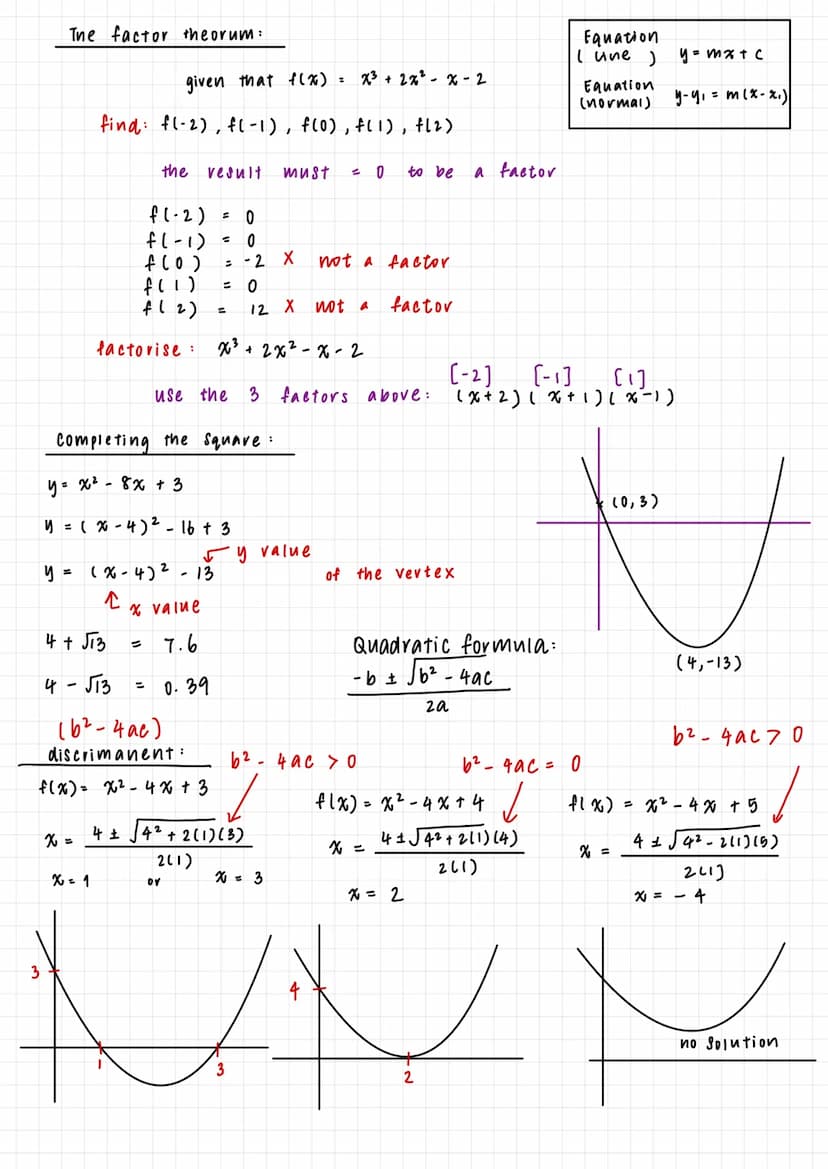 The factor theorum:
Equation
(line) y = mx + c
Equation
(normal) y-y₁ = m(x-x₁)
given that f(x) = x³ + 2x² - x - 2
find: f(-2), f(-1), f(0), f(1), f(2)
the result must = 0 to be a factor
f(-2) = 0
f(-1) = 0
f(0) = -2 X not a factor
f(1) = 0
f(2) = 12 X not a factor
factorise: x³ + 2x² - x - 2
[-2] [-1] [1]
use the 3 factors above: (x+2)(x+1)(x-1)
Completing the square:
y = x² - 8x + 3
y = (x-4)² - 16 + 3
y value
y = (x-4)² - 13
of the vertex
x value
4 + √13 = 7.6
4 - √13 = 0.39
(0,3)
(4,-13)
Quadratic formula:
-b ± √b² - 4ac
2a
(b² - 4ac)
discrimanent:
b² - 4ac > 0
f(x) = x² - 4x + 3
x = 4 ± √4² + 2(1)(3)
2(1)
x = 1 or x = 3
3
1
3
b² - 4ac = 0
f(x) = x² - 4x + 4
x = 4 ± √4² + 2(1)(4)
2(1)
x = 2
4
2
b² - 4ac > 0
f(x) = x² - 4x + 5
x = 4 ± √4² - 2(1)(5)
2(1)
x = -4
no solution